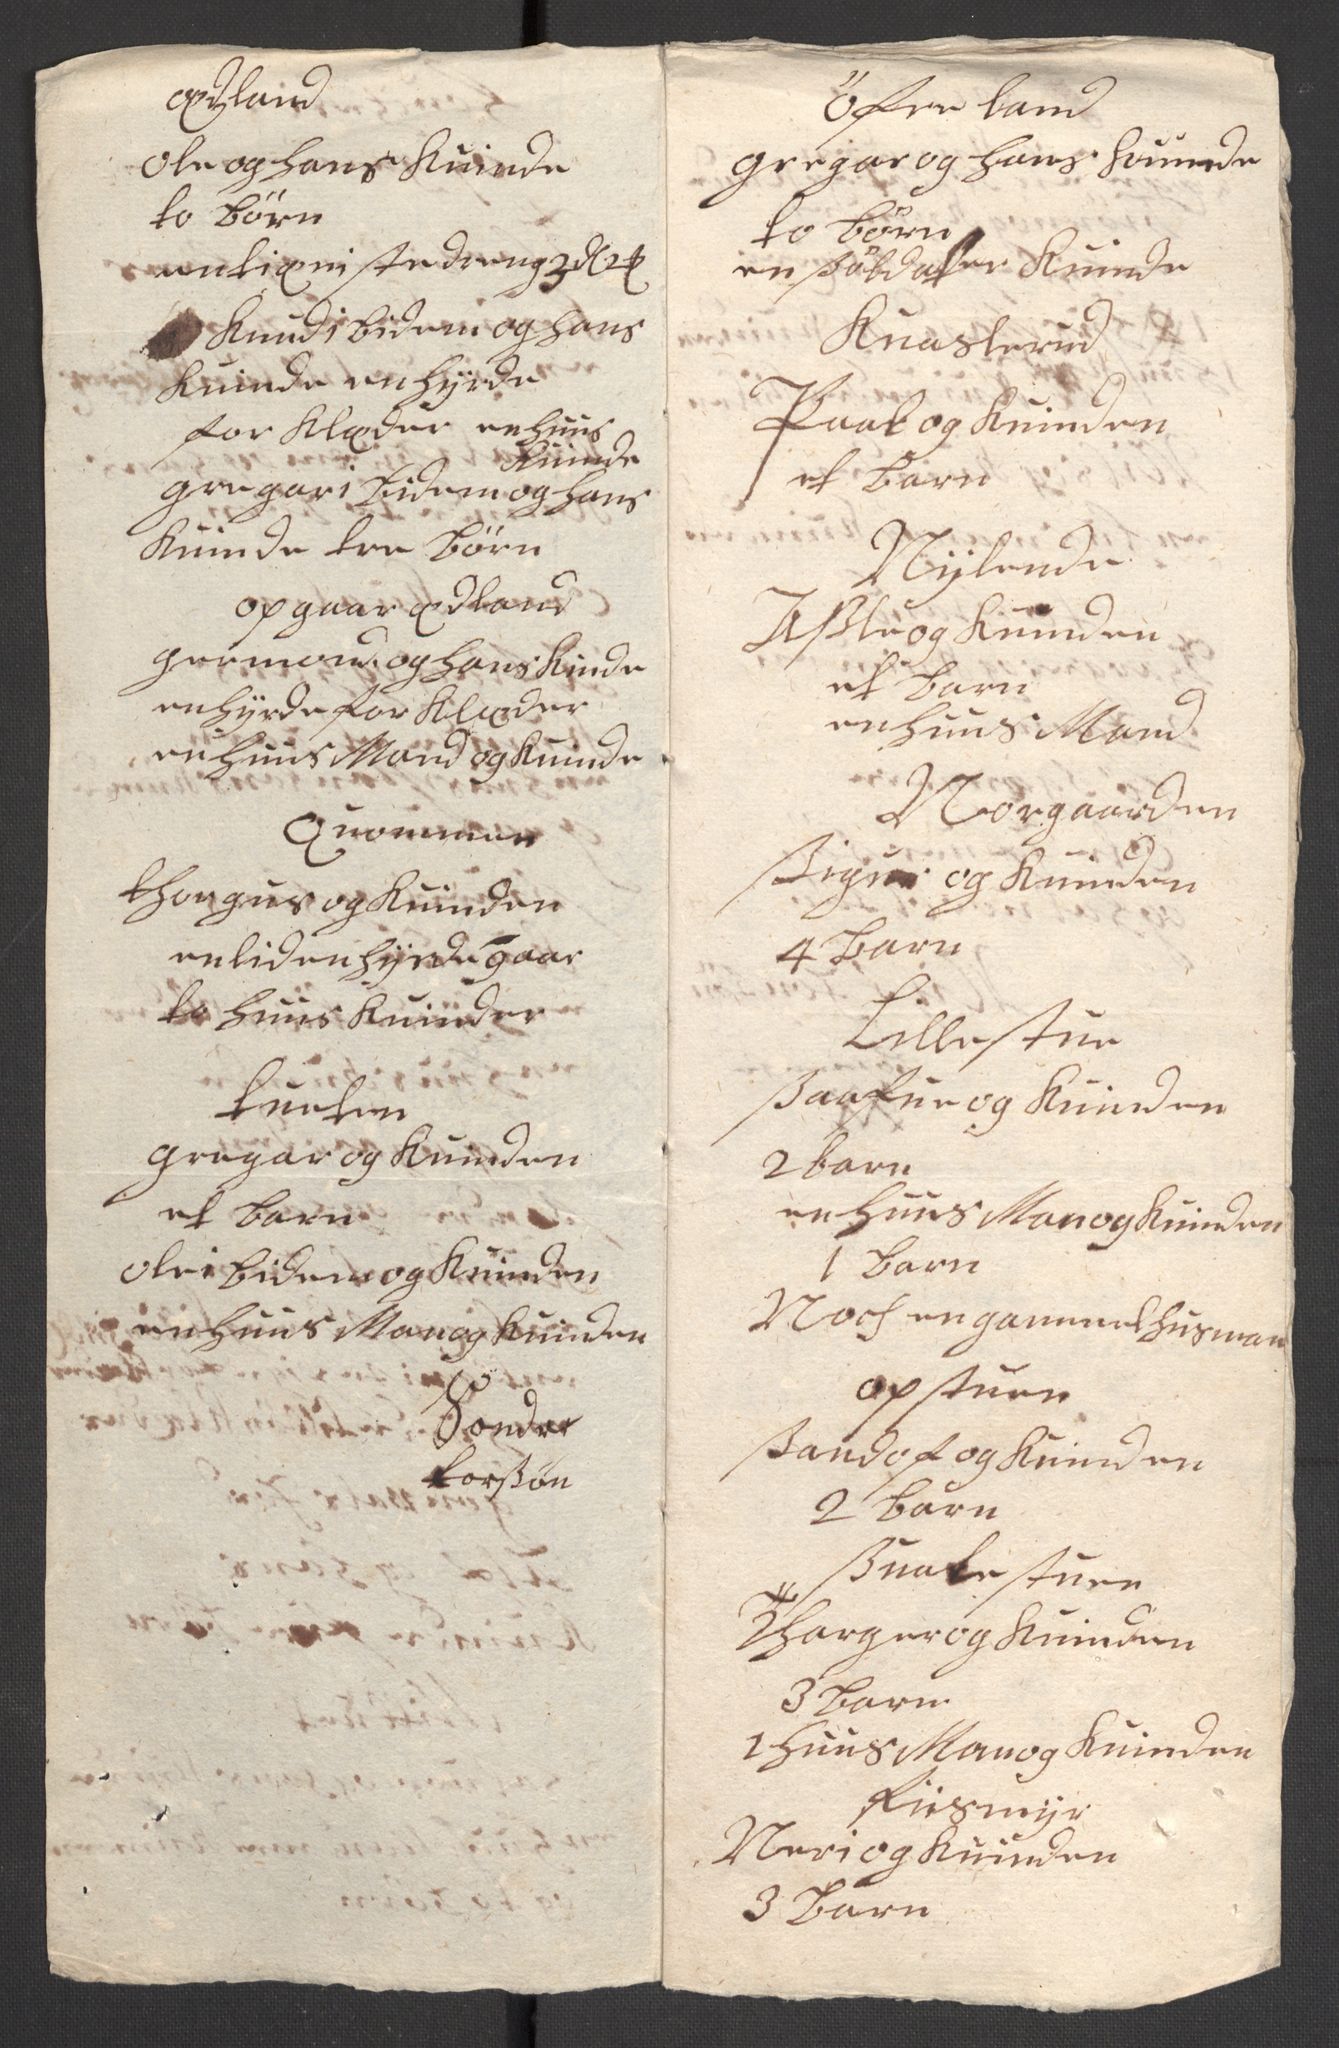 ødland
ole og hans Kuinde
to børn
en tieniste dreng 3 dl 2 ß
Knud i bidem og hans
Kuinde en hÿrde
for Klæder en huus
Kuinde
gregar i bidem og hans
Kuinde tre børn
opgaar ødland
germond og hans Kinde
en hÿrde for Klæder
en huus Mand og Kuinde
Quommen
thorgus og Kuinden
en liden hÿrde gaar
to huus Kuinder
tueten
gregar og Kuinden
et barn
ole i bidem og Kuinden
en huus Man og Kuinden
Sondre
torßøn
öfre land
gregar og hans kuinde
to börn
en ßoldater Kuinde
Kuaslerud
Paal og Kuinden
et barn
Nÿlende
Aßle og Kuinden
et barn
en huus Mand
Norgaarden
ßigur og Kuinden
4 barn
Lillestue
ßaafue og Kuinden
2 barn
en huus Man og Kuinden
1 barn
Noch en gammel husman
opstuen
ßandof og Kuinden
2 barn
ßuale stuen
Thorger og Kuinden
3 barn
1 huus Man og Kuinden
fiismÿr
Neri og Kuinden
3 barn